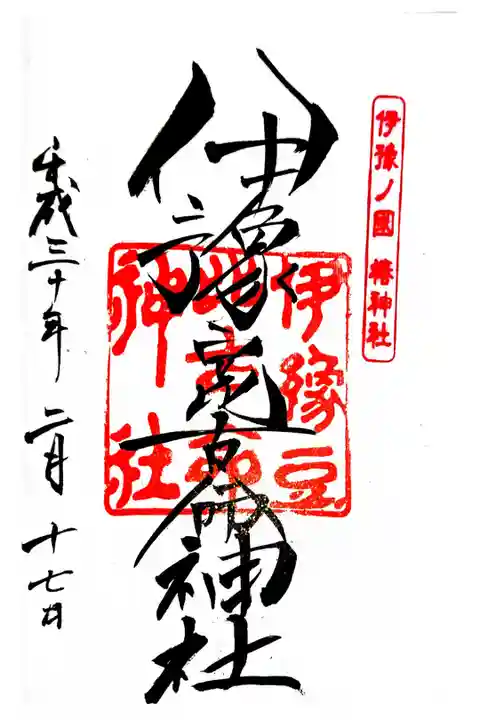 伊豫ノ國 椿神社
伊豫豆比古命神社
伊豫豆
比古命
神社
平成三十年 二月 十七日